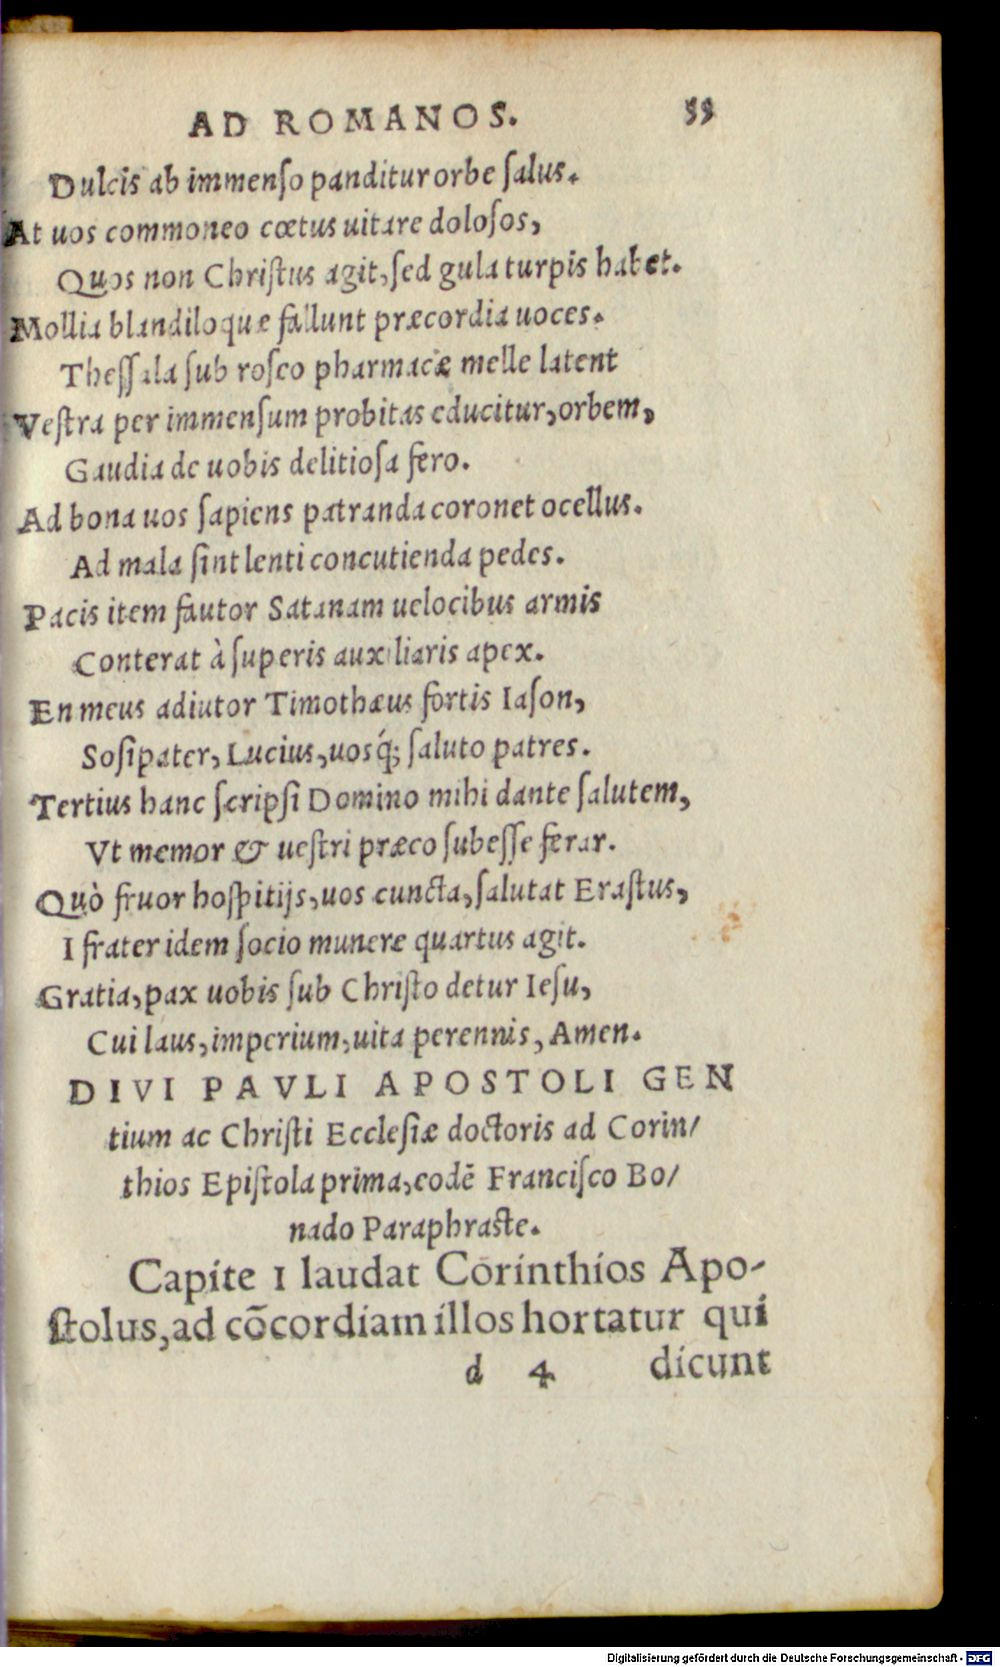 AD ROMANOS. 55
Dulcis ab immenso panditur orbe salus.
At uos commoneo cœtus uitare dolosos,
Quos non Christus agit, sed gula turpis habet.
Mollia blandiloquæ fallunt præcordia uoces.
Thessala sub rosco pharmacæ melle latent
Vestra per immensum probitas educitur, orbem,
Gaudia de uobis delitiosa fero.
Ad bona uos sapiens patranda coronet ocellus.
Ad mala sint lenti concutienda pedes.
Pacis item fautor Satanam uelocibus armis
Conterat à superis auxiliaris apex.
En meus adiutor Timothæus fortis Iason,
Sosipater, Lucius, uosq́; saluto patres.
Tertius hanc scripsi Domino mihi dante salutem,
Vt memor & uestri præco subesse ferar.
Quò fruor hospitijs, uos cuncta, salutat Erastus,
I frater idem socio munere quartus agit.
Gratia, pax uobis sub Christo detur Iesu,
Cui laus, imperium, uita perennis, Amen.
DIVI PAVLI APOSTOLI GEN
tium ac Christi Ecclesiæ doctoris ad Corin/
thios Epistola prima, eodē Francisco Bo/
nado Paraphraste.
Capite 1 laudat Corinthios Apo-
stolus, ad cōcordiam illos hortatur qui
d 4 dicunt
Digitalisierung gefördert durch die Deutsche Forschungsgemeinschaft - DFG